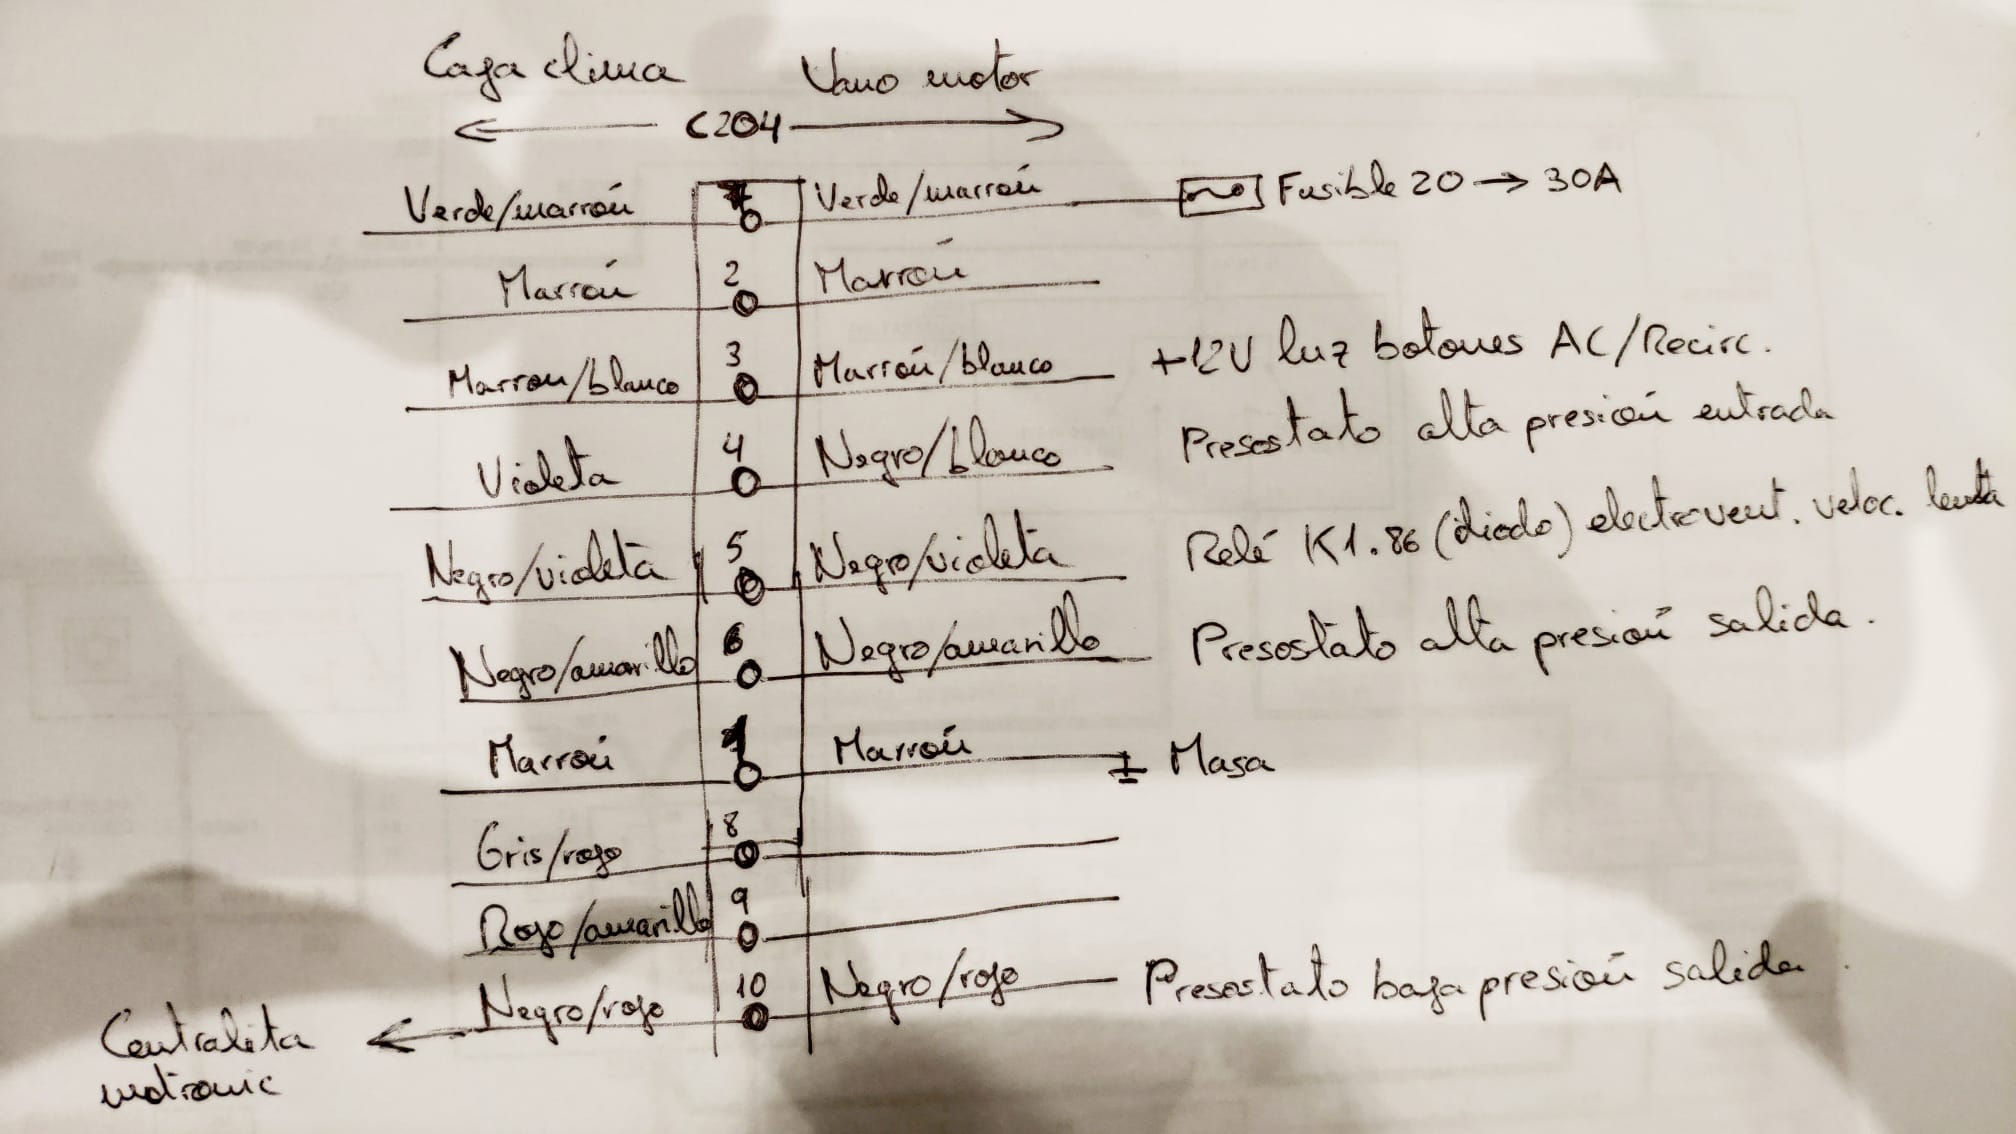 Caja clima Vano motor
C204
Verde/marrón Verde/marrón Fusible 20 → 30A
Marrón 2 Marrón
Marron/blanco 3 Marrón/blanco +12V luz botones AC/Recirc.
Violeta 4 Negro/blanco Presostato alta presión entrada
Negro/violeta 5 Negro/violeta Relé K1.86 (diodo) electrovent. veloc. lenta
Negro/amarillo 6 Negro/amarillo Presostato alta presión salida.
Marrón Marrón Masa
Gris/rojo 8
Rojo/amarillo 9
Negro/rojo 10 Negro/rojo Presostato baja presión salida
Centralita
motronic